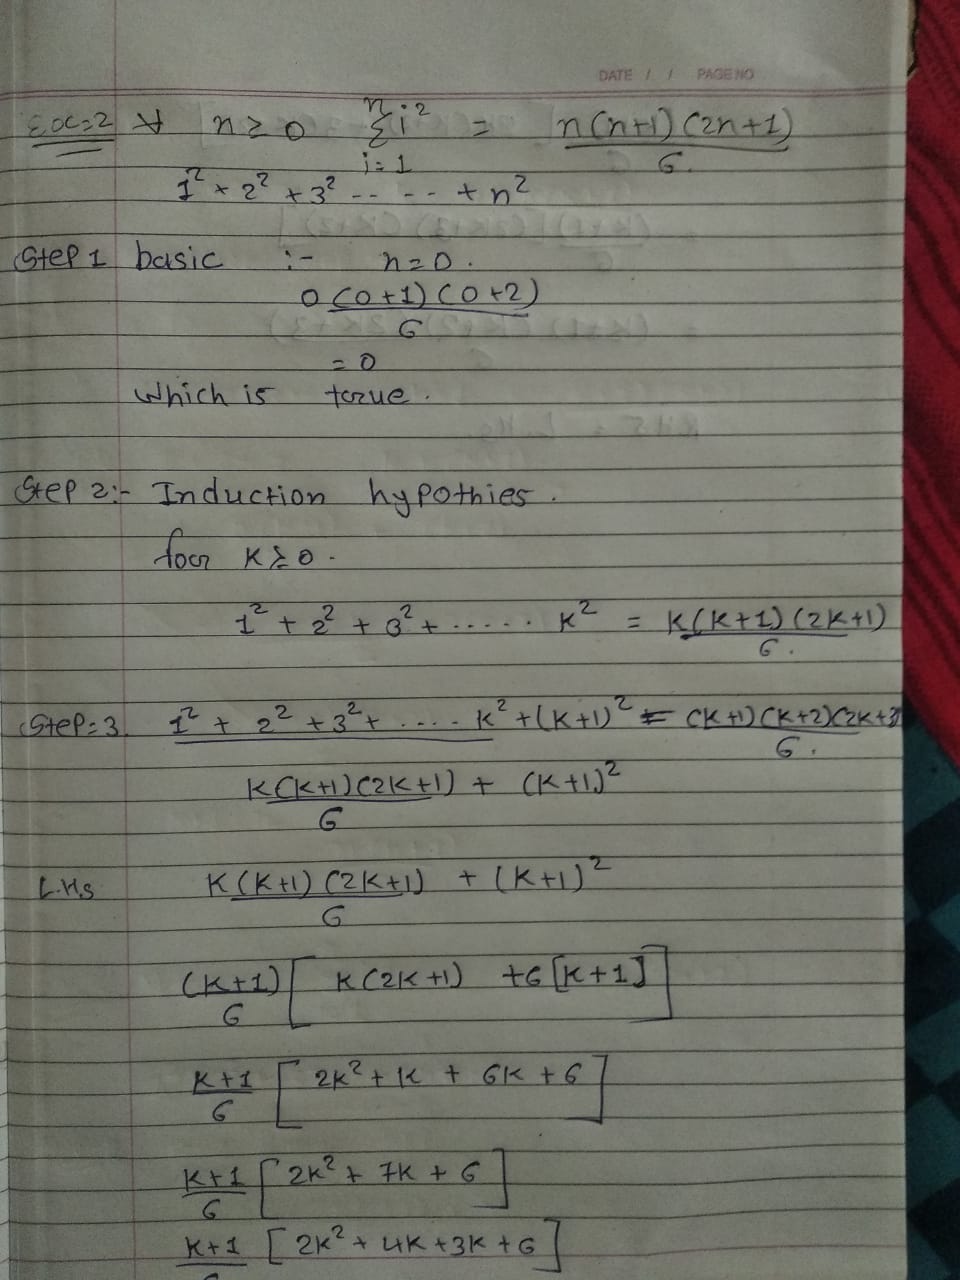 DATE / / PAGE NO
Ex=2 ∀ n≥0 n
Σi² = n(n+1)(2n+1)
i=1 6.
1² + 2² + 3² ----- + n²
Step 1 basic :- n=0.
0(0+1)(0+2)
6
= 0
which is true.
Step 2:- Induction hypothies.
for K≥0.
1² + 2² + 3² + ..... K² = K(K+1)(2K+1)
6.
Step=3. 1² + 2² + 3² + .... K² + (K+1)² = (K+1)(K+2)(2K+3)
6.
K(K+1)(2K+1) + (K+1)²
6
L.Hs K(K+1)(2K+1) + (K+1)²
6
(K+1) [ K(2K+1) +6[K+1] ]
6
K+1 [ 2K² + K + 6K + 6 ]
6
K+1 [ 2K² + 7K + 6 ]
6
K+1 [ 2K² + 4K + 3K + 6 ]